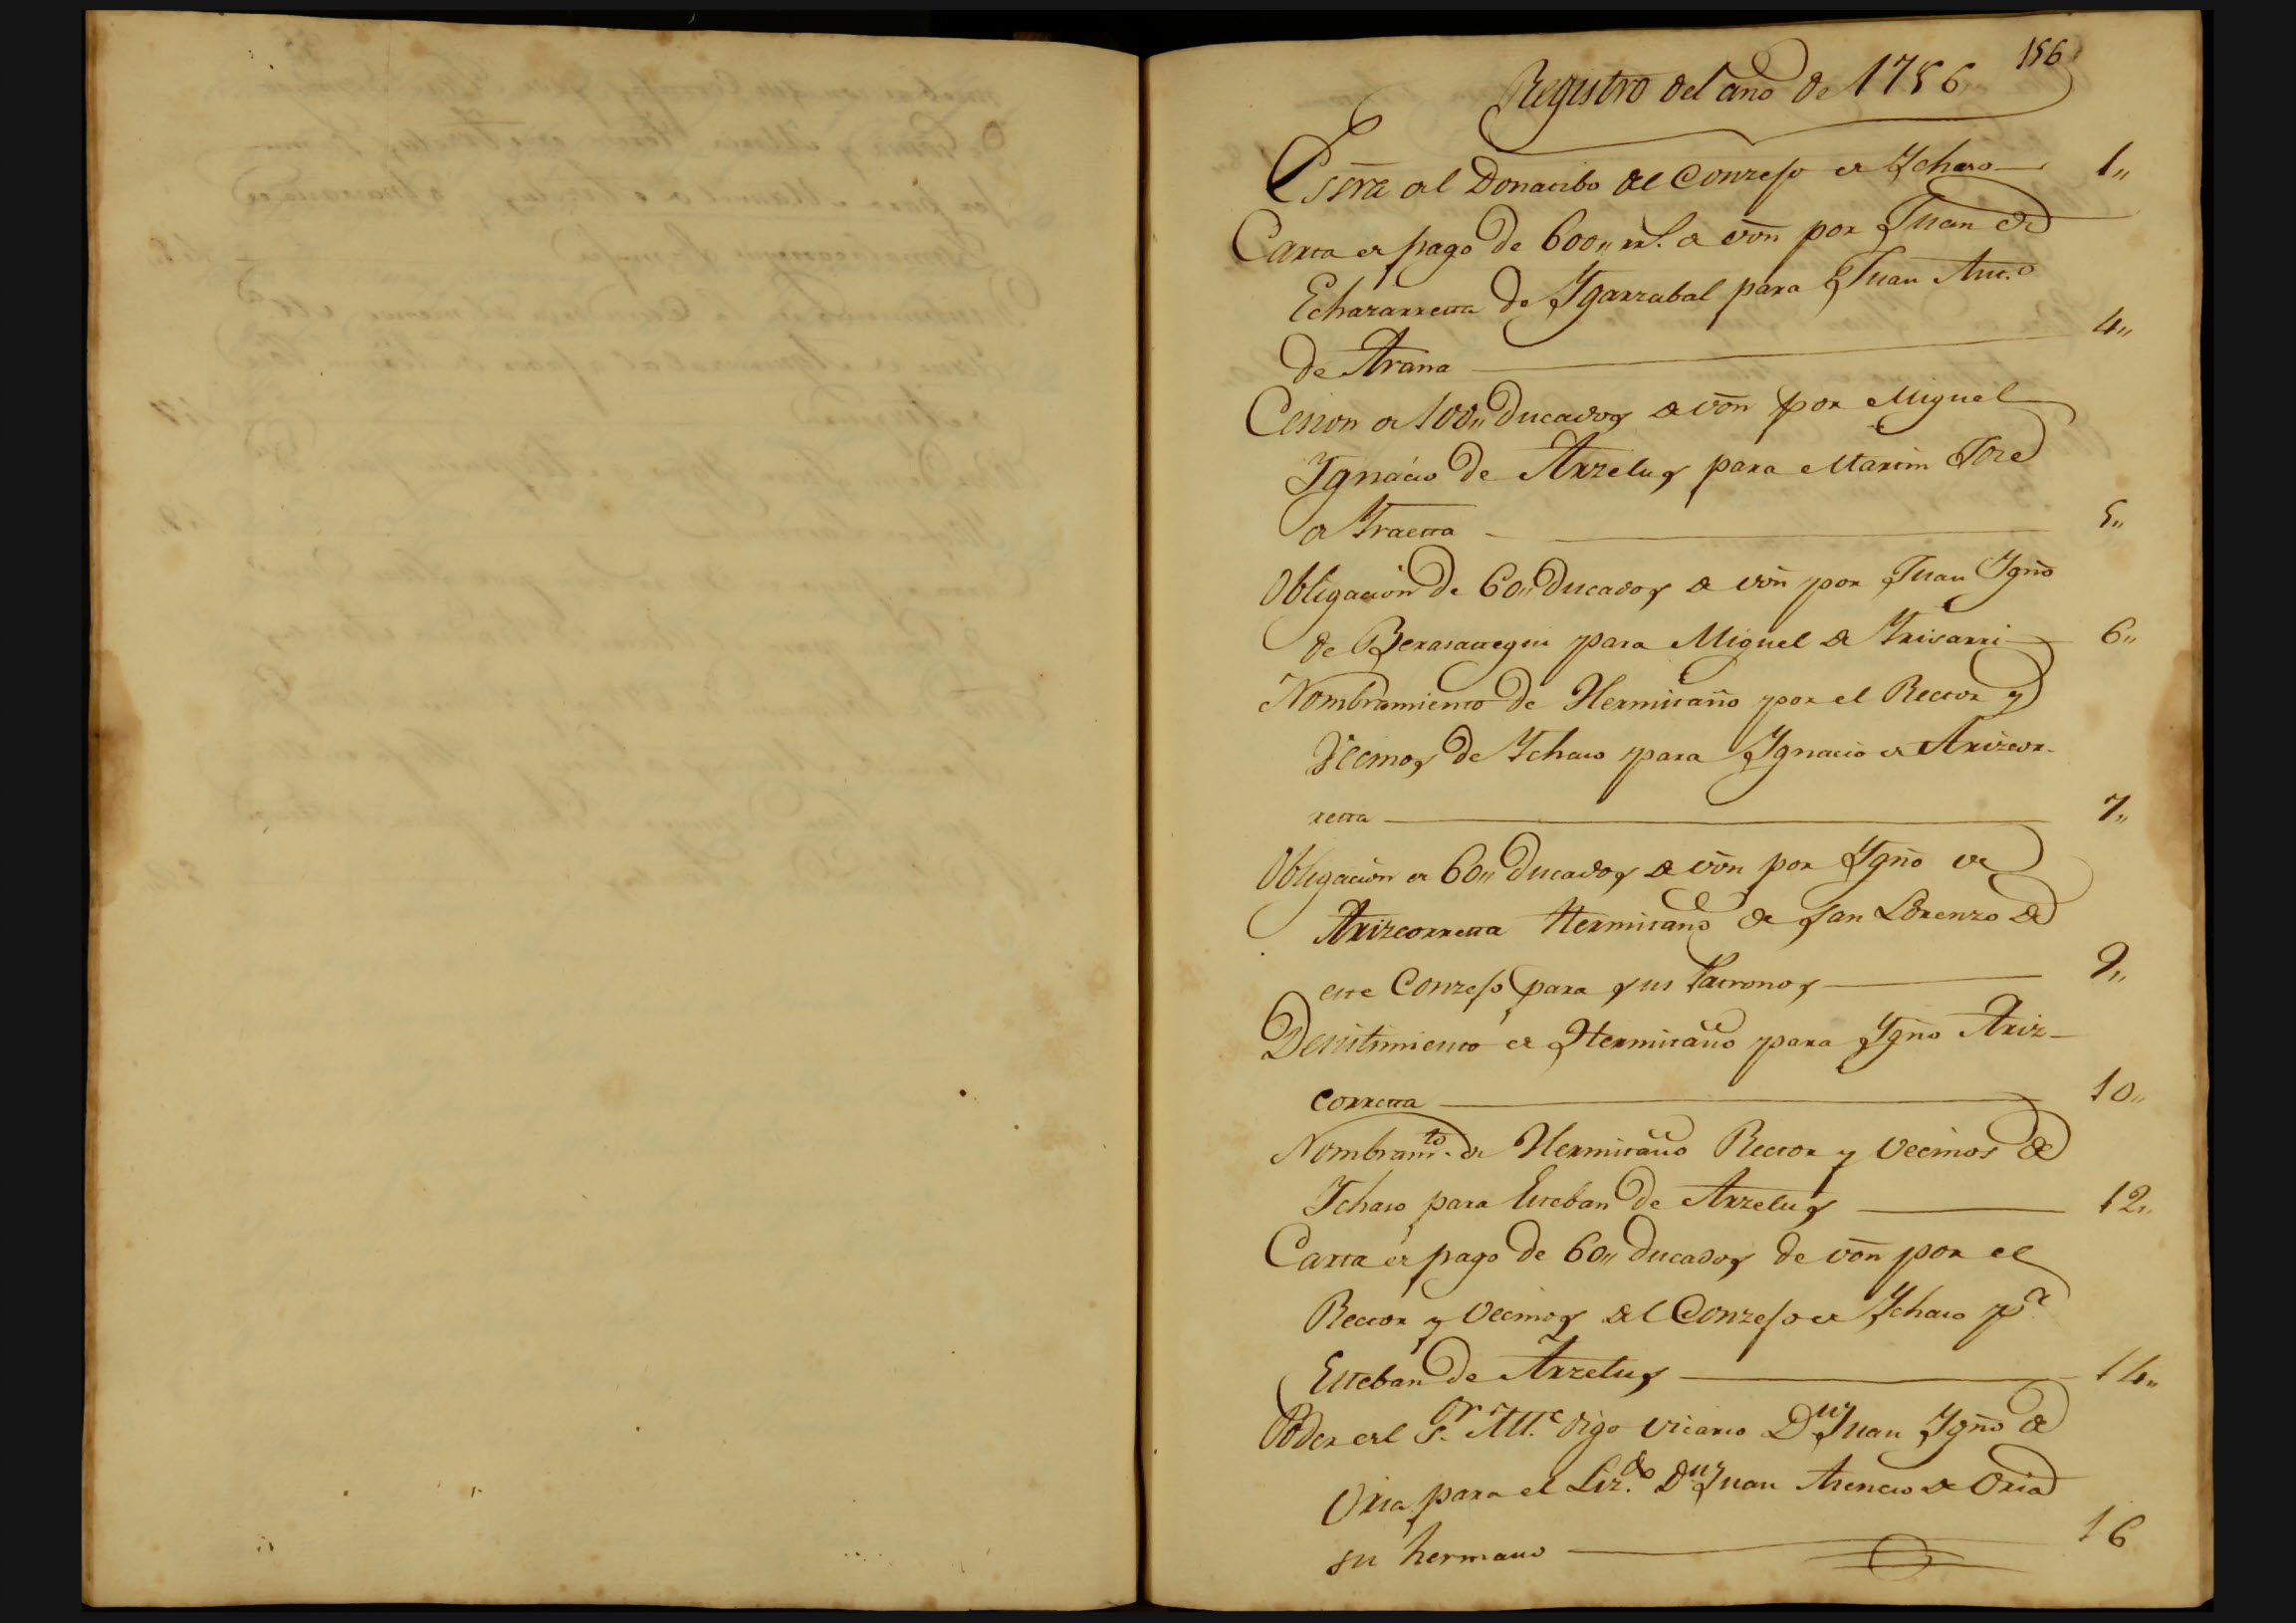 156
Registro del año de 1756
Essra del Donatibo del Conzejo de Ychaso 1,,
Carta de pago de 600,, rr.s de vōn por Juan de
Echazarreta de Ygarzabal para Juan Ant.o
de Arana 4,,
Cesion de 100,, Ducados de vōn por Miguel
Ygnacio de Arzelus para Martin Jose
de Yraeta 5,,
Obligacion de 60,, Ducados de vōn por Juan Ygño
de Berasategui para Miguel de Yrisarri 6,,
Nombramiento de Hermitaño por el Rector y
Vecinos de Ychaso para Ygnacio de Arizcor-
reta 7,,
Obligacion de 60,, Ducados de vōn por Ygño de
Arizcorreta Hermitaño de San Lorenzo de
este Conzejo para sus Patronos 9,,
Desistimiento de Hermitaño para Ygño Ariz-
correta 10,,
Nombram.to de Hermitaño Rector y Vecinos de
Ychaso para Esteban de Arzelus 12,,
Carta de pago de 60,, ducados de vōn por el
Rector y Vecinos del Conzejo de Ychaso p.a
Esteban de Arzelus 14,,
Poder del S.r digo Vicario D.n Juan Ygño de
Oria para el Liz.do D.n Juan de Oria
su hermano 16